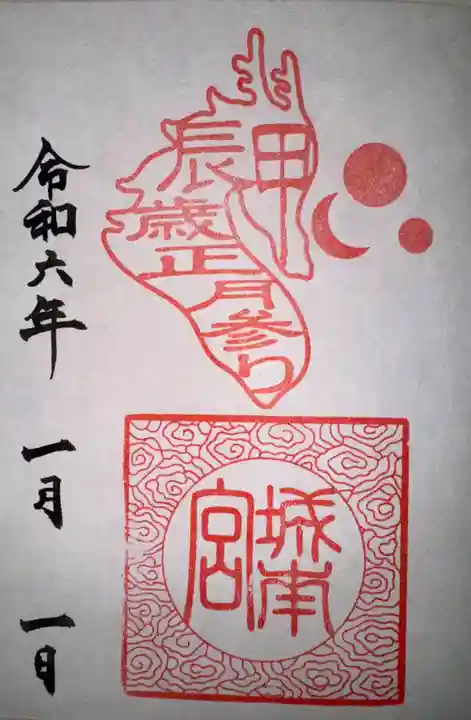 甲
辰
歳
正
月
参
り
城南
宮
令和六年 一月 一日